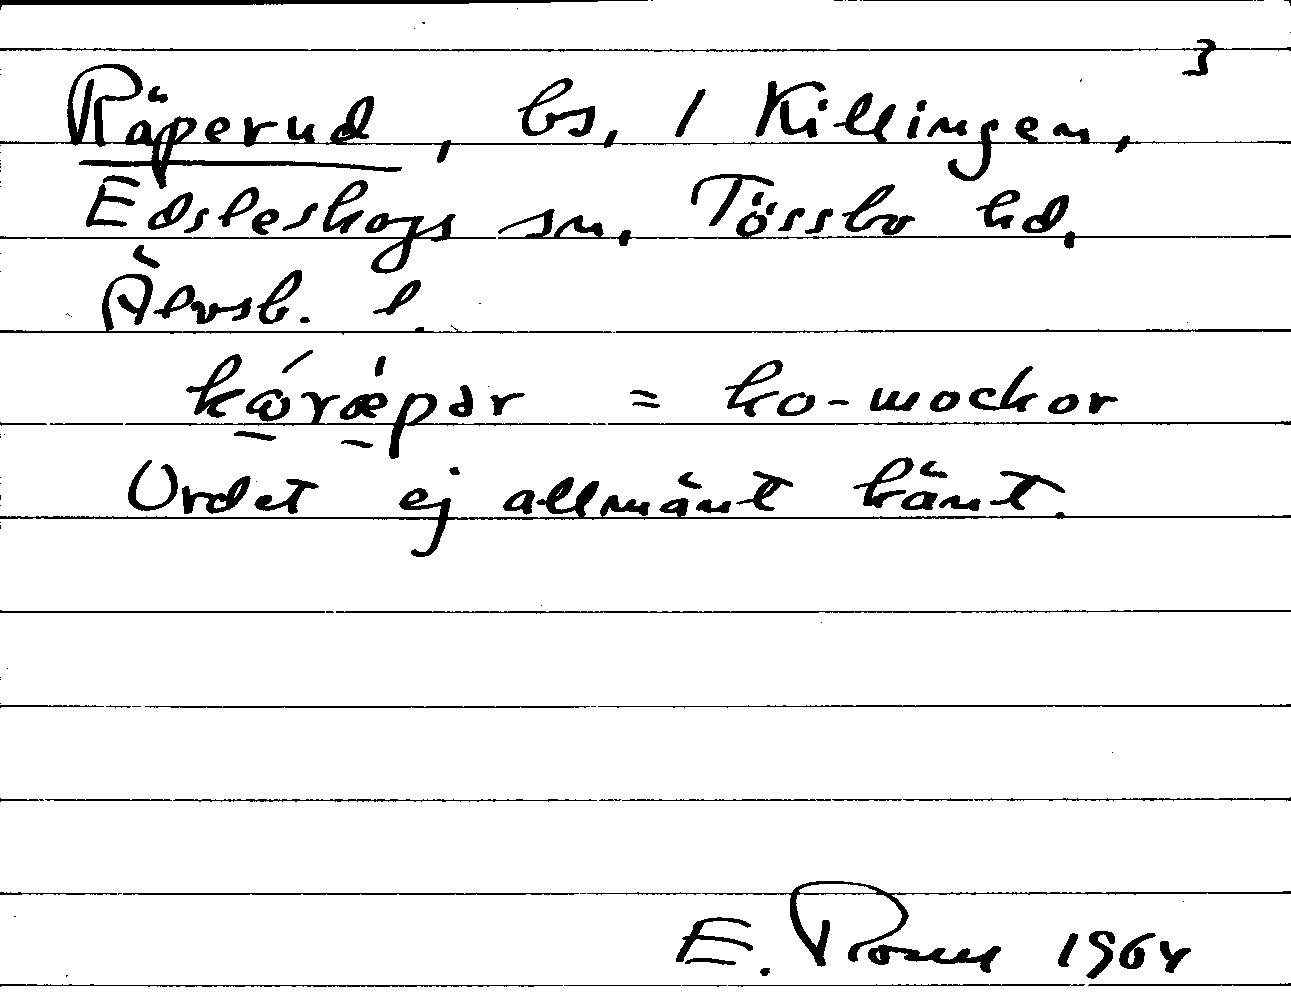 3
Räperud, bs, 1 Killingen,
Edsleskogs sn, Tössbo hd,
Älvsb. l.
= ko-mockor
Ordet ej allmänt känt.
E. 1964